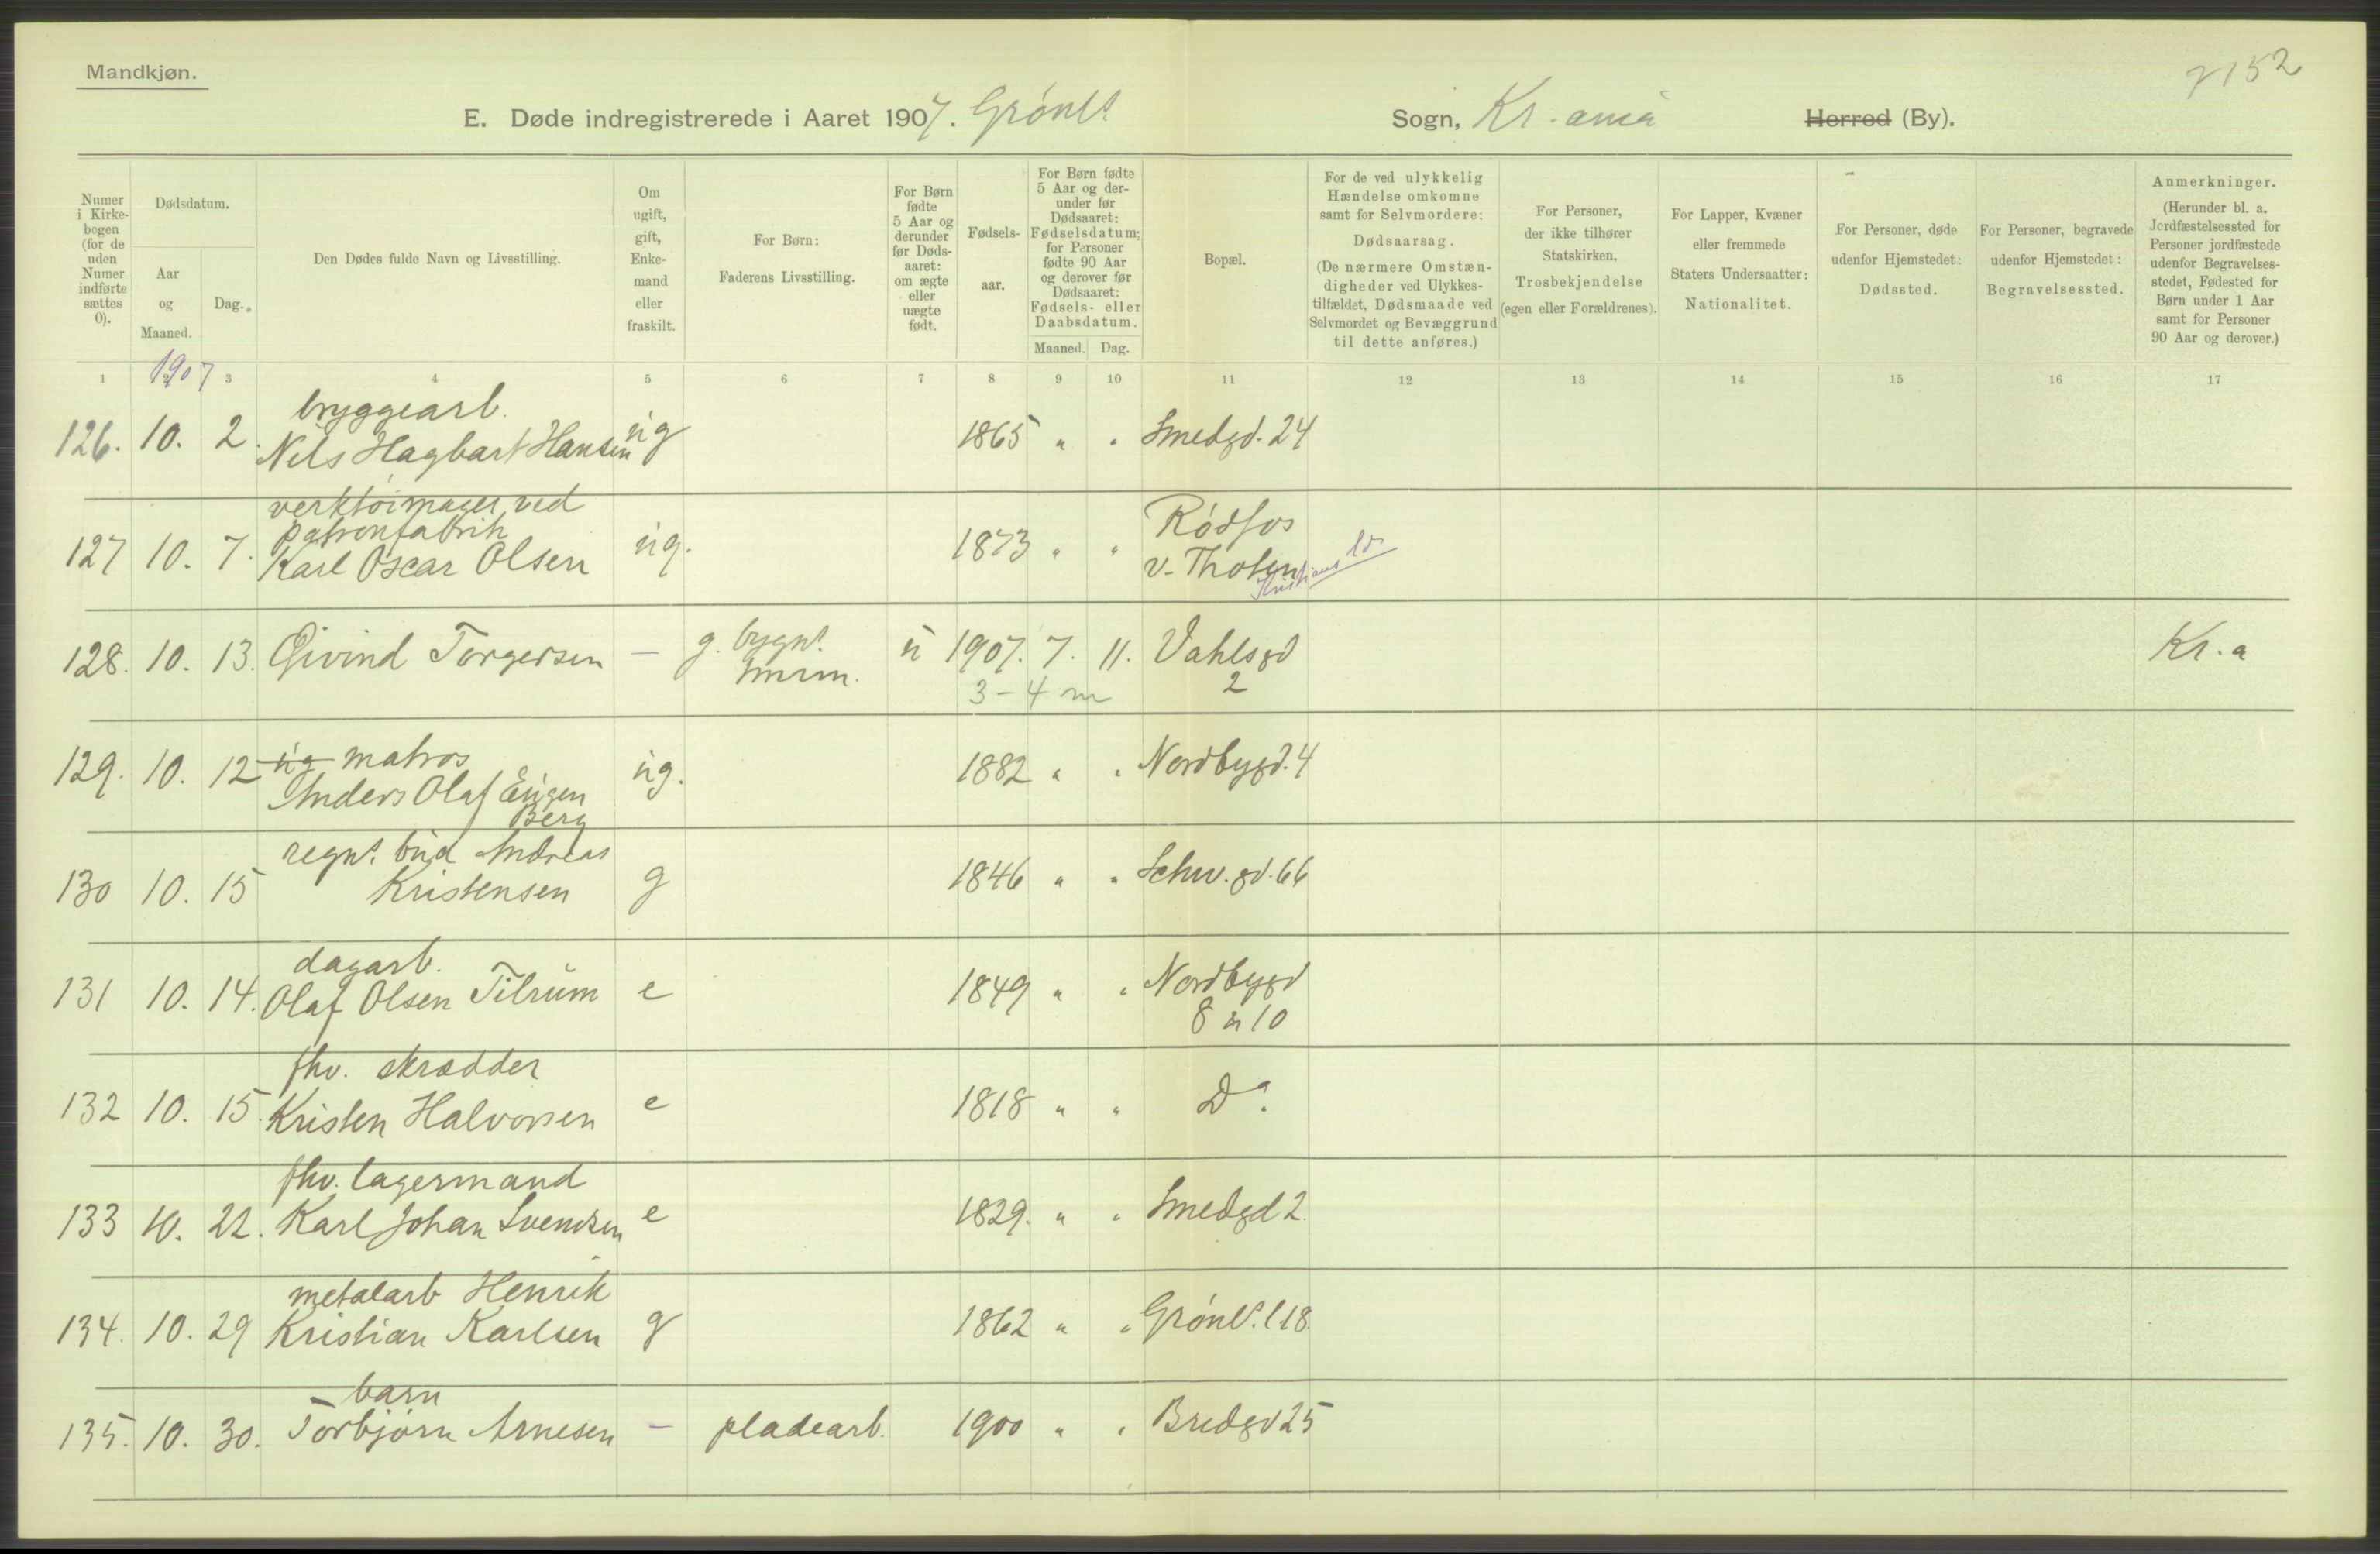 Mandkjøn.
7152
E. Døde indregistrerede i Aaret 1907. Grønl. Sogn, Kr.ania Herred (By).
Numer i Kirkebogen (for de uden Numer indførte sættes 0).
Dødsdatum.
Aar og Maaned.
Dag.
Den Dødes fulde Navn og Livsstilling.
Om ugift, gift, Enkemand eller fraskilt.
For Børn:
Faderens Livsstilling.
For Børn fødte 5 Aar og derunder før Dødsaaret: om ægte eller uægte født.
Fødselsaar.
For Børn fødte 5 Aar og derunder før Dødsaaret: Fødselsdatum; for Personer fødte 90 Aar og derover før Dødsaaret: Fødsels- eller Daabsdatum.
Maaned. Dag.
Bopæl.
For de ved ulykkelig Hændelse omkomne samt for Selvmordere: Dødsaarsag. (De nærmere Omstændigheder ved Ulykkestilfældet, Dødsmaade ved Selvmordet og Bevæggrund til dette anføres.)
For Personer, der ikke tilhører Statskirken, Trosbekjendelse (egen eller Forældrenes).
For Lapper, Kvæner eller fremmede Staters Undersaatter: Nationalitet.
For Personer, døde udenfor Hjemstedet: Dødssted.
For Personer, begravede udenfor Hjemstedet: Begravelsessted.
Anmerkninger. (Herunder bl. a. Jordfæstelsessted for Personer jordfæstede udenfor Begravelsesstedet, Fødested for Børn under 1 Aar samt for Personer 90 Aar og derover.)
1 2 3 4 5 6 7 8 9 10 11 12 13 14 15 16 17
1907
bryggearb.
126. 10. 2. Nils Hagbart Hansen ug 1865 " " Smedgd. 24
verktøimager ved
patronfabrik
127 10. 7. Karl Oscar Olsen ug. 1873 " " Rødfos
v. Thoten Kristians
128. 10. 13. Øivind Torgersen — g. bygn. u 1907. 7. 11. Vahlsgd Kr.a
murm. 3-4 m 2
129. 10. 12 ug matros ug. 1882 " " Nordbygd. 4
Anders Olaf Eugen
Berg
130 10. 15 regnt. bud Andreas g 1846 " " Schw. gd. 66
Kristensen
dagarb.
131 10. 14. Olaf Olsen Tilrum e 1849 " " Nordbygd
8 n 10
fhv. skrædder
132 10. 15. Kristen Halvorsen e 1818 " " Do.
fhv. lagermand
133 10. 22. Karl Johan Svendsen e 1829. " " Smedgd 2.
metalarb Henrik
134. 10. 29 Kristian Karlsen g 1862 " " Grønl. l 18.
barn
135. 10. 30. Torbjørn Arnesen — pladearb. 1900 " " Bredgd 25